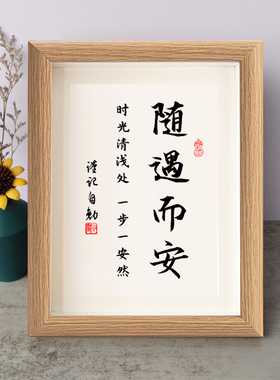 随遇而安
时光清浅处 一步一安然
谨记自勉